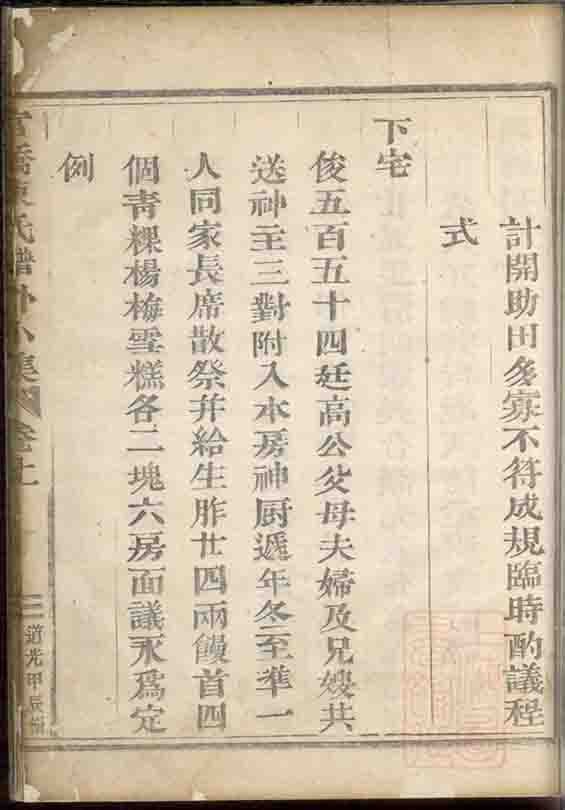 計開助田多寡不符成規臨時酌議程
式
下宅
俊五百五十四廷高公父母夫婦及兄嫂共
送神至三對附入本房神厨遞年冬至準一
人同家長席散祭并給生胙廿四兩饅首四
個青粿楊梅雪糕各二塊六房面議永爲定
例
氏譜外小集 卷七
道光甲辰